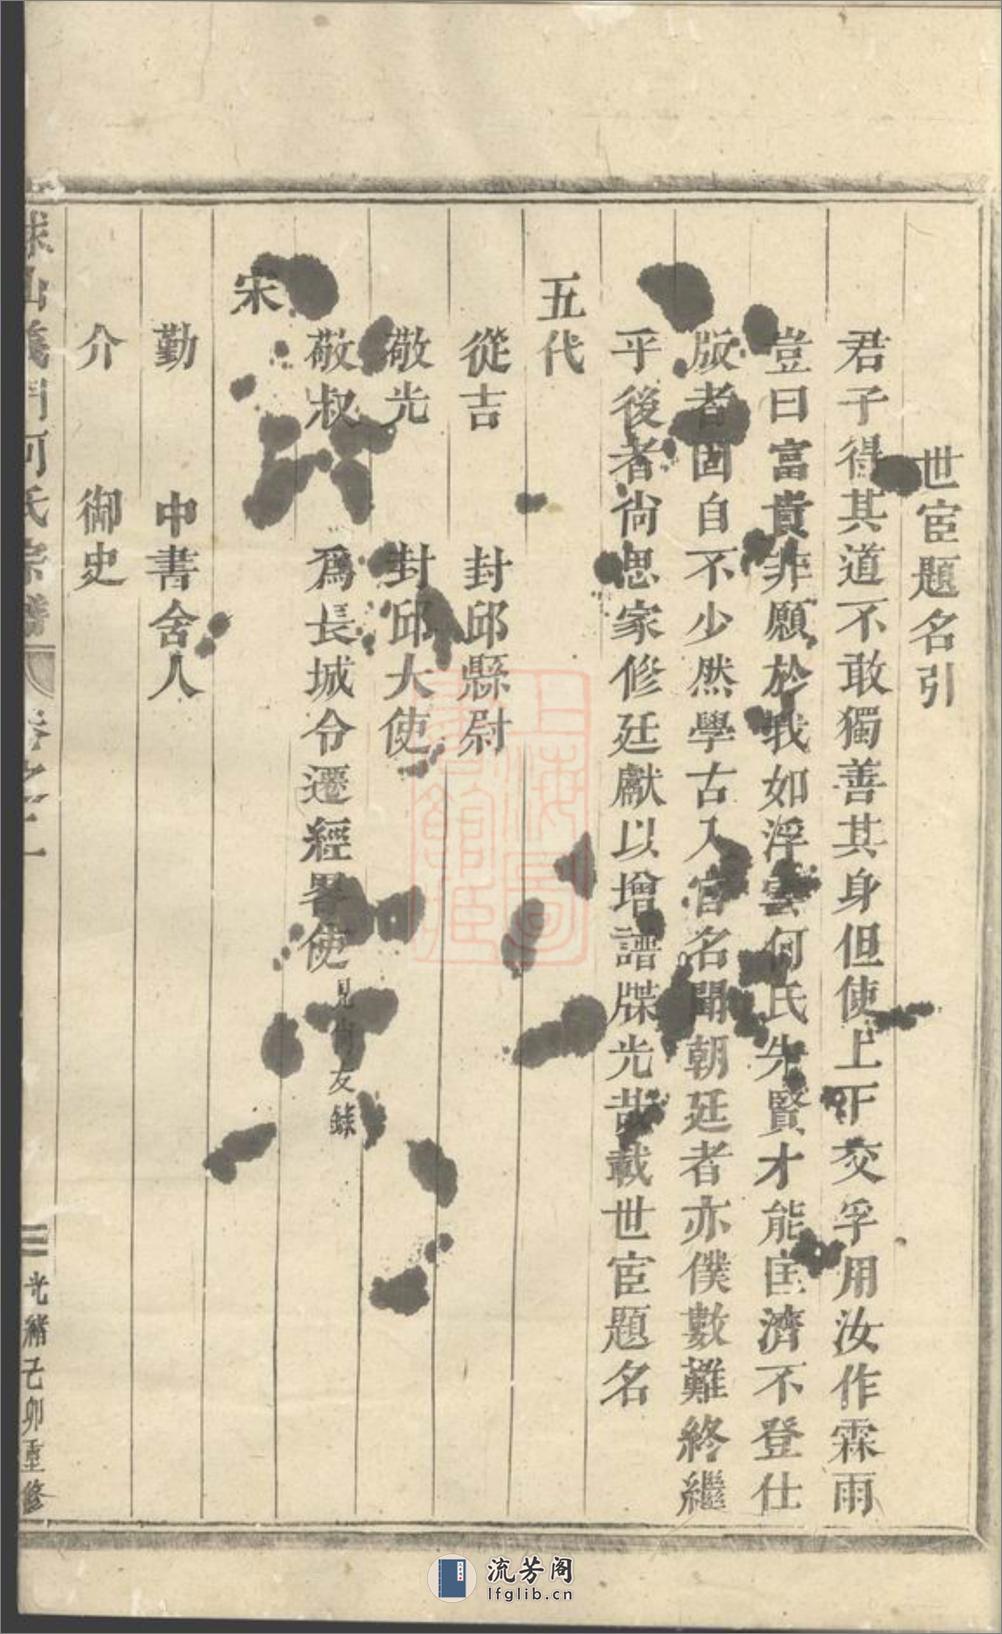 世宦題名引
君子得其道不敢獨善其身但使上下交孚用汝作霖雨
豈曰富貴非願於我如浮雲何氏先賢才能匡濟不登仕
版者固自不少然學古入官名聞朝廷者亦僕數難終繼
乎後者尚思家修廷獻以增譜牒光哉載世宦題名
五代
從吉 封邱縣尉
敬光 封邱大使
敬叔 為長城令遷經畧使 見尚友錄
宋
勤 中書舍人
介 御史
球山義門何氏宗譜 卷之二 三 光緒己卯重修
上海圖書館藏
流芳阁
lfglib.cn